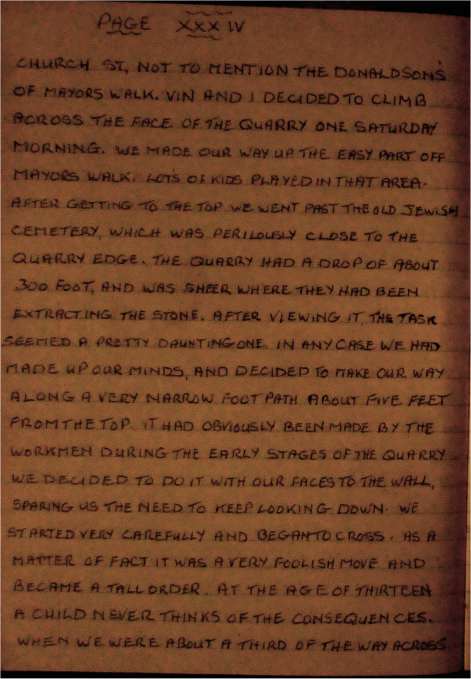 PAGE XXXIV
CHURCH ST, NOT TO MENTION THE DONALDSON'S
OF MAYORS WALK. VIN AND I DECIDED TO CLIMB
ACROSS THE FACE OF THE QUARRY ONE SATURDAY
MORNING. WE MADE OUR WAY UP THE EASY PART OFF
MAYORS WALK. LOTS OF KIDS PLAYED IN THAT AREA.
AFTER GETTING TO THE TOP WE WENT PAST THE OLD JEWISH
CEMETERY, WHICH WAS PERILOUSLY CLOSE TO THE
QUARRY EDGE. THE QUARRY HAD A DROP OF ABOUT
300 FOOT, AND WAS SHEER WHERE THEY HAD BEEN
EXTRACTING THE STONE. AFTER VIEWING IT, THE TASK
SEEMED A PRETTY DAUNTING ONE. IN ANY CASE WE HAD
MADE UP OUR MINDS, AND DECIDED TO MAKE OUR WAY
ALONG A VERY NARROW FOOT PATH ABOUT FIVE FEET
FROM THE TOP. IT HAD OBVIOUSLY BEEN MADE BY THE
WORKMEN DURING THE EARLY STAGES OF THE QUARRY.
WE DECIDED TO DO IT WITH OUR FACES TO THE WALL,
SPARING US THE NEED TO KEEP LOOKING DOWN. WE
STARTED VERY CAREFULLY AND BEGAN TO CROSS. AS A
MATTER OF FACT IT WAS A VERY FOOLISH MOVE AND
BECAME A TALL ORDER. AT THE AGE OF THIRTEEN
A CHILD NEVER THINKS OF THE CONSEQUENCES.
WHEN WE WERE ABOUT A THIRD OF THE WAY ACROSS